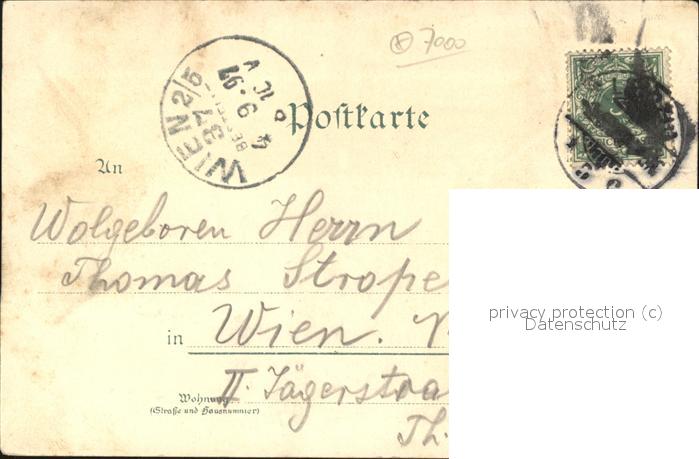 7000
WIEN 2/5
87
BESTELLT
9. 97
Postkarte
An
Wolgeboren Herrn
Thomas Strope
in Wien.
II. Jägerstra
Wohnung
(Straße und Hausnummer)
Th.
privacy protection (c)
Datenschutz